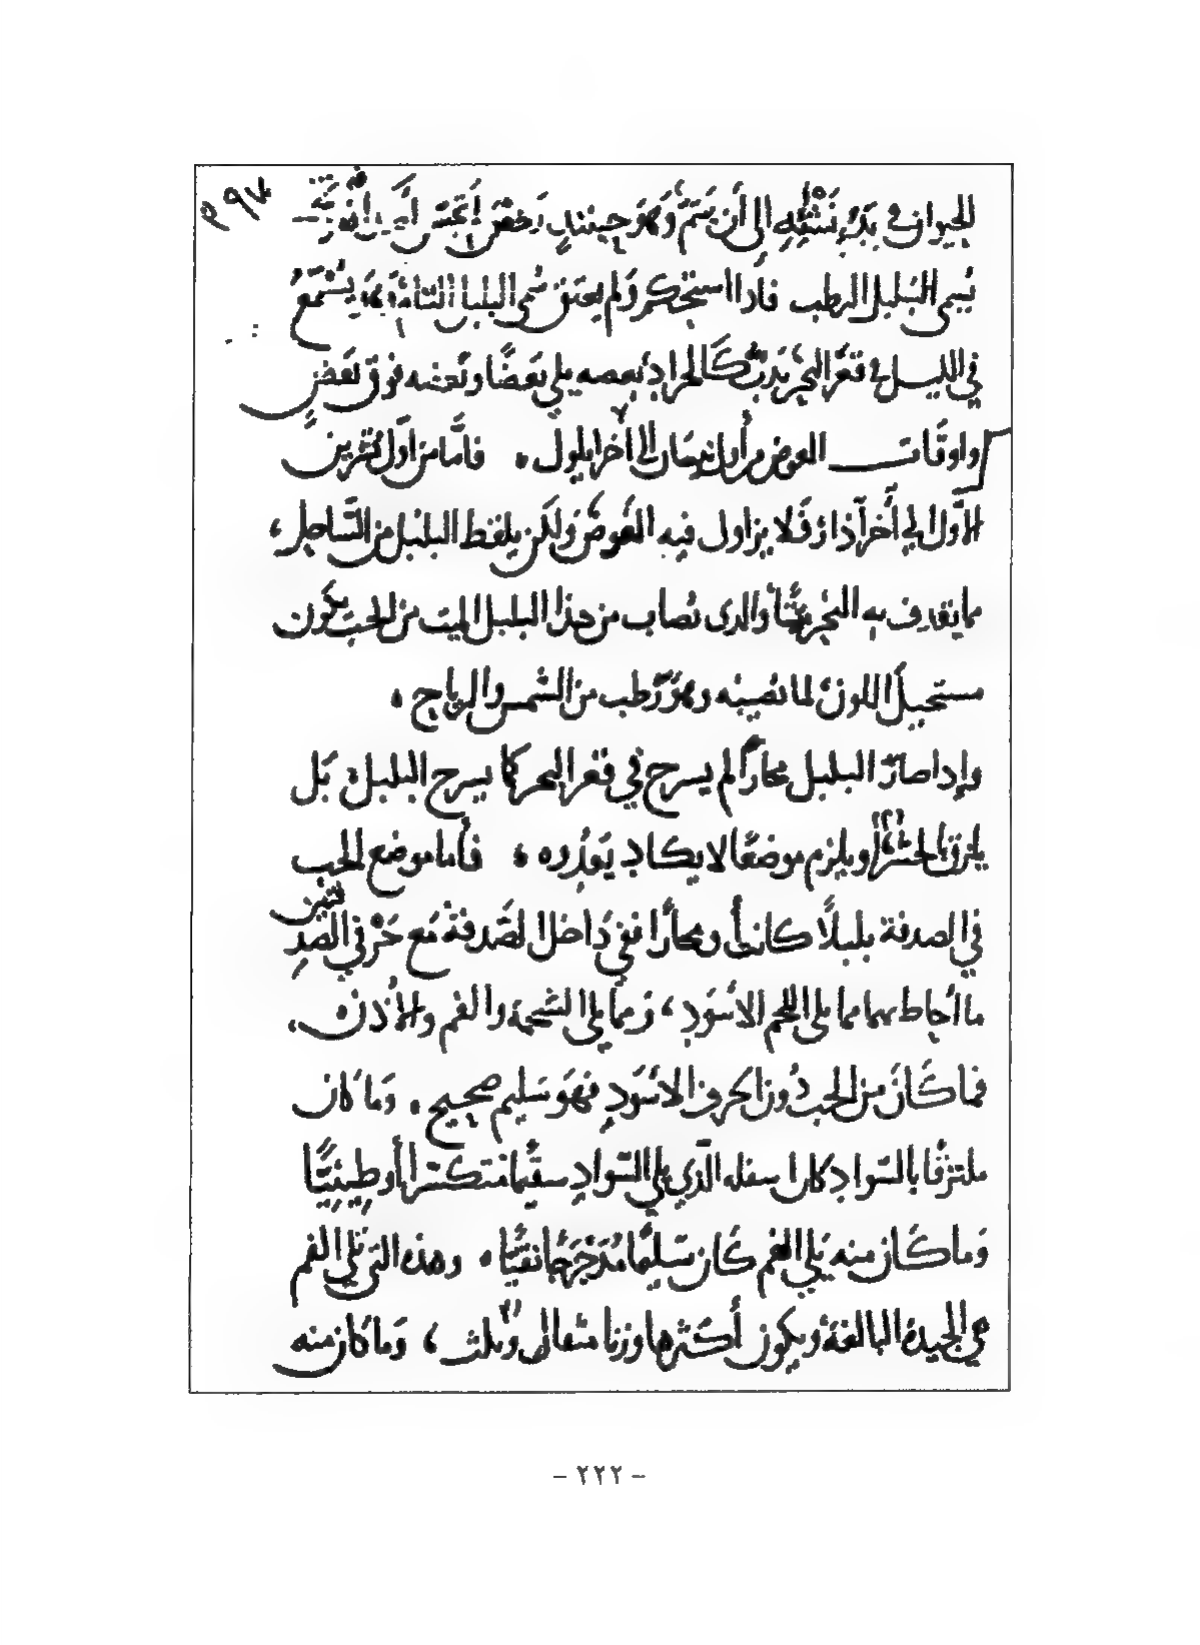 م ٩٧
الحيوان في بَدْءِ نَشْئِهِ إلى أن يَتمّ وَهوَ حينئذٍ رَخصٌ
يُسمى البُلبل الرطب فاذا استحكم وَلم يعتق سُمى البلبل
في الليل في قعْر البحر يَدبُّ كَالجراد بَعضه يلي بَعضًا وبَعضه فوق بَعضٍ
واوقات الغوص من أول نيسَان إلى آخر ايلول . فامَّا من اوّل تشرين
الأوّل إلى آخر آذار فَلا يزاول فيه الغَوصُ وَلكن يلقط البلبُل من السَّاحِل ،
مما يقذف به البحْر والذى يُصاب من هذا البلبل الميت من الحب يكون
مستحيل اللون لما يُصيبه وهوَ رَطب من الشمس والرياح .
وإذا صارَ البلبل محارًا لم يسرح في قعْر البحر كما يسرح البلبل بَل
يلزق ويلزم موضعًا لا يكاد يَعدُوه ، فأما موضع الحب
في الصدفة بلبلًا كانت أو محارًا ففي دَاخل الصَّدفة مَع حَرْفي الصَّدِفتين
ما أحاط بهما مما يلي اللحم الاسْوَد ، وَمما يلي الشحمة والفم والأذن .
فما كَانَ من الحب دُون الحرف الأسْوَدِ فهوَ سَليم صحيح . وَما كان
ملتزقًا بالسّوادِ كان اسفله الّذي يلي السّواد سقيمًا متكسرًا أو طِينيًّا
وَما كَان منه يَلي الفم كَان سَليمًا مُدَحْرَجًا نقيًّا . وهذه التى تَلي الفم
هي الجيدة البالغَة ويكون أكثرها وزنا مثقال وثلث ، وَما كان منه
- ٢٢٢ -